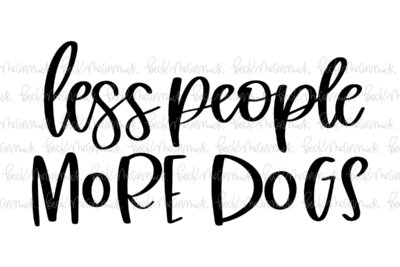 less people
MORE DOGS